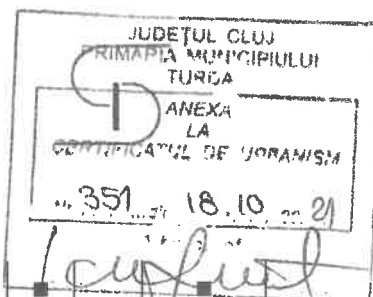 JUDEȚUL CLUJ
PRIMARIA MUNICIPIULUI
TURDA
ANEXA
LA
CERTIFICATUL DE URBANISM
351 18.10 21